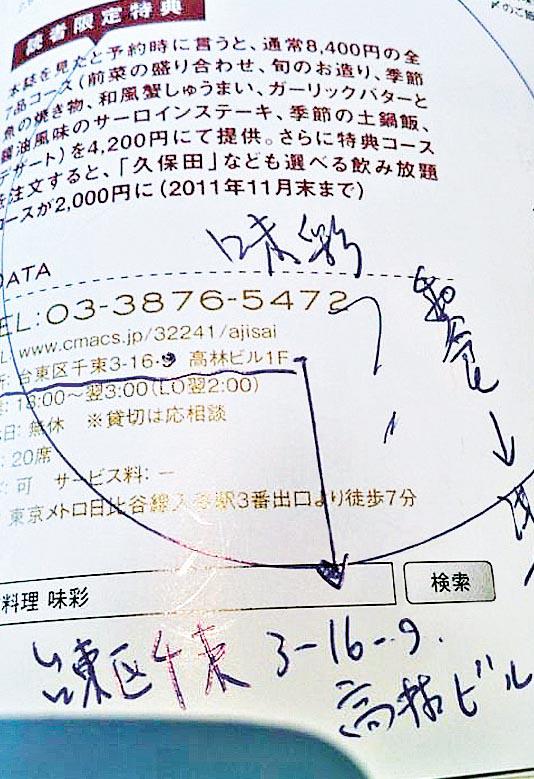 読者限定特典
本誌を見たと予約時に言うと、通常8,400円の全
7品コース(前菜の盛り合わせ、旬のお造り、季節
魚の焼き物、和風蟹しゅうまい、ガーリックバターと
醤油風味のサーロインステーキ、季節の土鍋飯、
デザート)を4,200円にて提供。さらに特典コース
を注文すると、「久保田」なども選べる飲み放題
コースが2,000円に(2011年11月末まで)
味彩
DATA
TEL:03-3876-5472
www.cmacs.jp/32241/ajisai
台東区千束3-16-9 高林ビル1F
18:00〜翌3:00(LO翌2:00)
無休 ※貸切は応相談
20席
可 サービス料:ー
東京メトロ日比谷線入谷駅3番出口より徒歩7分
料理 味彩
検索
台東区千束 3-16-9.
高林ビル